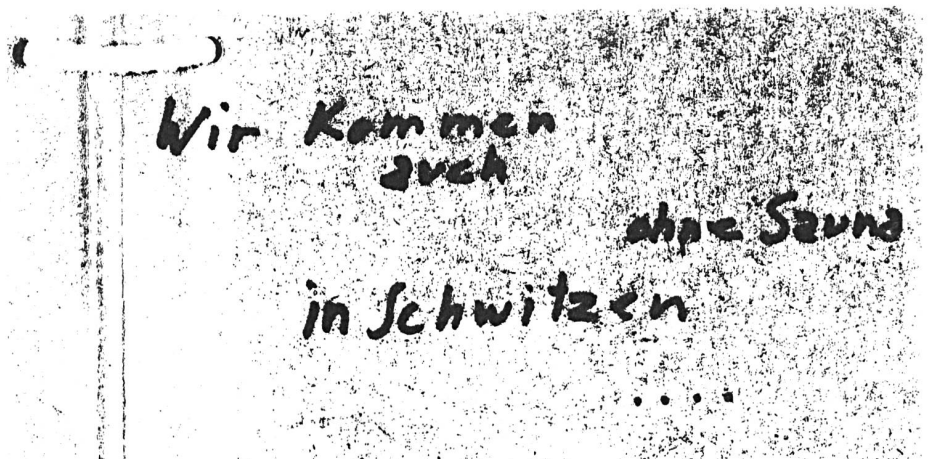 Wir Kommen
auch
ohne Sauna
in Schwitzen
.....